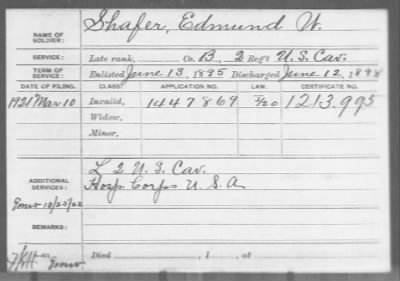 NAME OF SOLDIER: Shafer, Edmund W.
SERVICE: Late rank, Co. B, 2 Reg't U.S. Cav.
TERM OF SERVICE: Enlisted June 13, 1895 Discharged June 12, 1898
DATE OF FILING. CLASS. APPLICATION NO. LAW. CERTIFICATE NO.
1921 Mar 10 Invalid, 1447869 1213.995
Widow,
Minor,
ADDITIONAL SERVICES: L 2 U.S. Cav.
Hosp Corps U.S.A
10/20/22
REMARKS:
Died , 1 , at